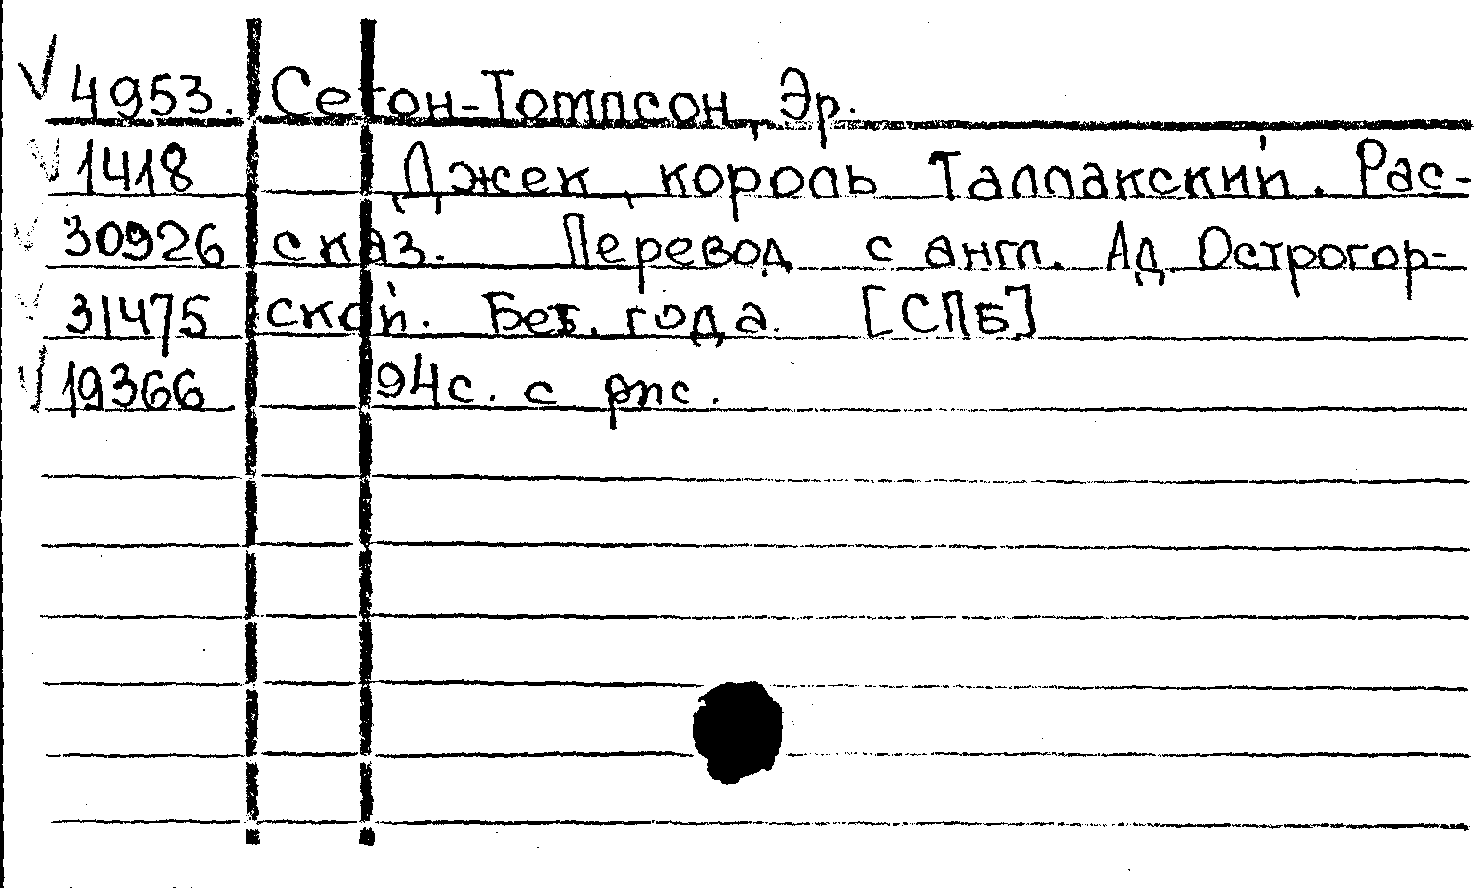 4953. Сетон-Томпсон, Эр.
1418 Джек, король Таллакский. Рас-
30926 сказ. Перевод с англ. Ад Острогор-
31475 ской. Без. года. [СПБ]
19366 94с. с рис.